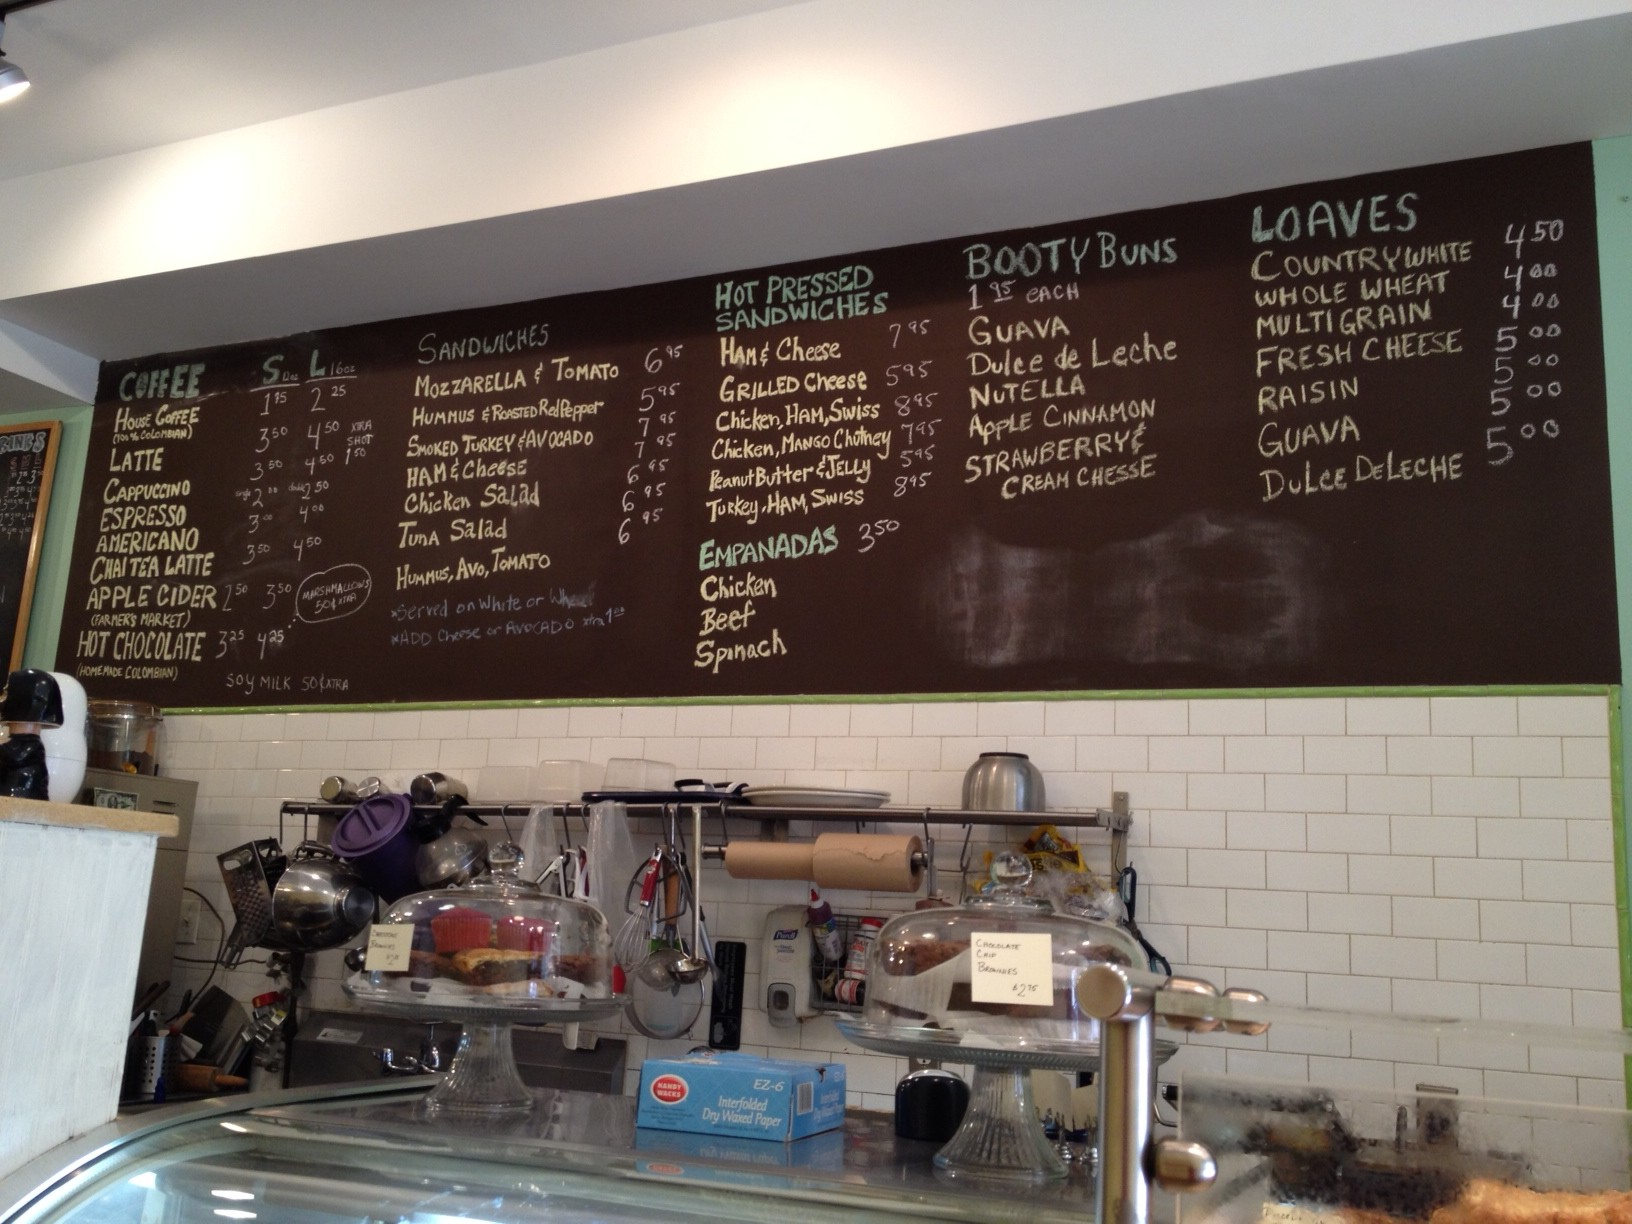 COFFEE S 12oz L 16oz
HOUSE COFFEE 1 75 2 25
(100% COLOMBIAN)
LATTE 3 50 4 50 XTRA SHOT 1 50
CAPPUCCINO 3 50 4 50
ESPRESSO single 2 00 double 2 50
AMERICANO 3 00 4 00
CHAI TEA LATTE 3 50 4 50
APPLE CIDER 2 50 3 50
(FARMER'S MARKET)
MARSHMALLOWS
50¢ XTRA
HOT CHOCOLATE 3 25 4 25
(HOMEMADE COLOMBIAN)
SOY MILK 50¢ XTRA
SANDWICHES
MOZZARELLA & TOMATO 6 95
HUMMUS & ROASTED Red Pepper 5 95
SMOKED TURKEY & AVOCADO 7 95
HAM & Cheese 7 95
Chicken Salad 6 95
Tuna Salad 6 95
Hummus, Avo, TOMATO 6 95
*Served on White or
*ADD Cheese or AVOCADO xtra 1 00
HOT PRESSED
SANDWICHES
HAM & Cheese 7 95
GRILLED Cheese 5 95
Chicken, HAM, Swiss 8 95
Chicken, MANGO Chutney 7 95
Peanut Butter & JELLY 5 95
Turkey, HAM, Swiss 8 95
EMPANADAS 3 50
Chicken
Beef
Spinach
BOOTY BUNS
1 95 EACH
GUAVA
Dulce de Leche
NUTELLA
APPLE CINNAMON
STRAWBERRY &
CREAM CHESSE
LOAVES
COUNTRY WHITE 4 50
WHOLE WHEAT 4 00
MULTIGRAIN 4 00
FRESH CHEESE 5 00
RAISIN 5 00
GUAVA 5 00
DULCE DE LECHE 5 00
BROWNIES
CHOCOLATE
CHIP
BROWNIES
$2.75
Purell
HANDY
WACKS
EZ-6
Interfolded
Dry Waxed Paper